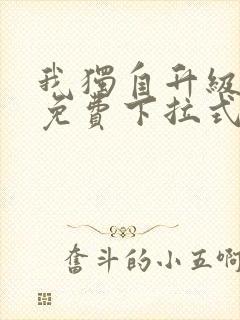 我獨自升級
免費下拉式
奮斗的小五啊